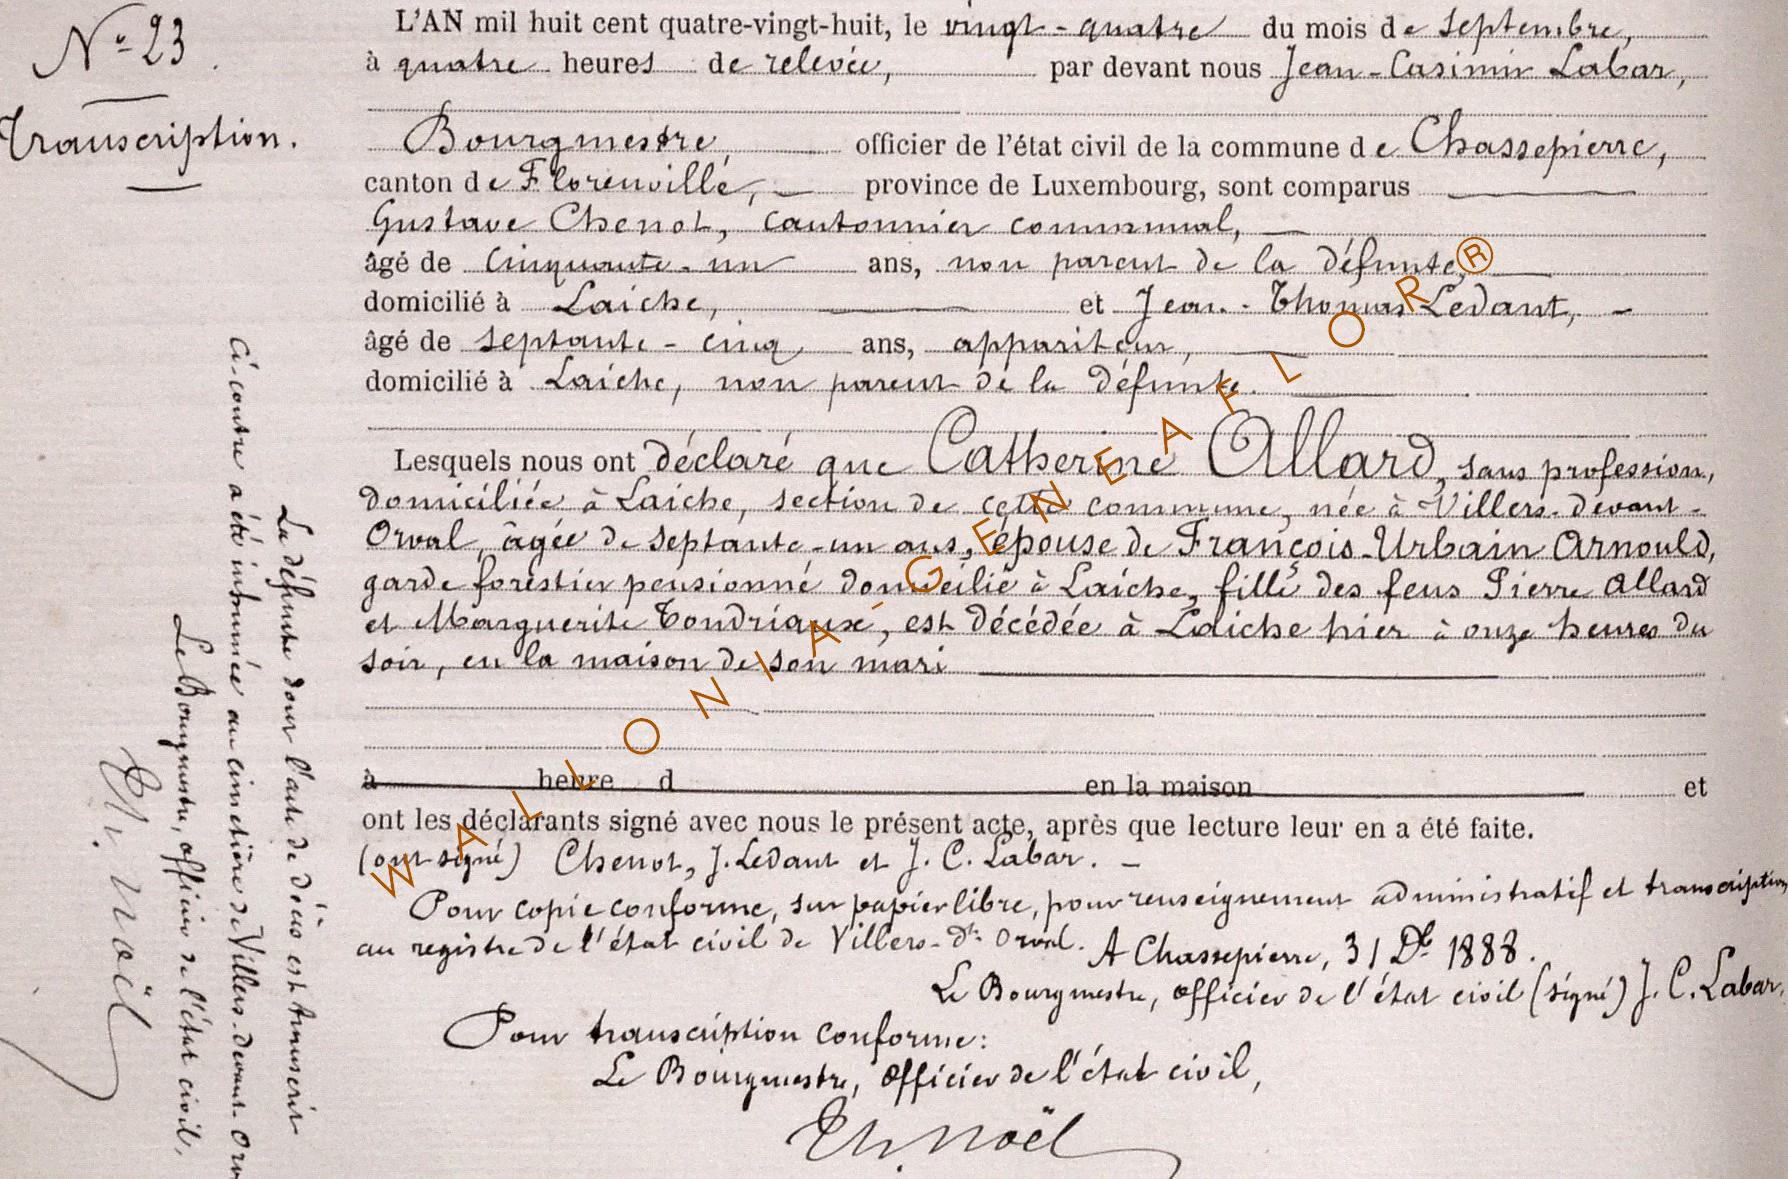 Nº 23.
Transcription.
L'AN mil huit cent quatre-vingt-huit, le vingt-quatre du mois de septembre,
à quatre heures de relevée, par devant nous Jean-Casimir Labar,
Bourgmestre, officier de l'état civil de la commune de Chassepierre,
canton de Florenville, province de Luxembourg, sont comparus
Gustave Chenot, cantonnier communal,
âgé de cinquante-un ans, non parent de la défunte,
domicilié à Laiche, et Jean-Thomas Ledant,
âgé de septante-cinq ans, appariteur,
domicilié à Laiche, non parent de la défunte.
Lesquels nous ont déclaré que Catherine Allard, sans profession,
domiciliée à Laiche, section de cette commune, née à Villers-devant-
Orval, âgée de septante-un ans, épouse de François-Urbain Arnould,
garde forestier pensionné domicilié à Laiche, fille des feus Pierre Allard
et Marguerite Tondriaux, est décédée à Laiche hier à onze heures du
soir, en la maison de son mari
à heure d en la maison et
ont les déclarants signé avec nous le présent acte, après que lecture leur en a été faite.
(ont signé) Chenot, J. Ledant et J. C. Labar.
Pour copie conforme, sur papier libre, pour renseignement administratif et transcription
au registre de l'état civil de Villers-dt Orval. A Chassepierre, 31 Dbe 1888.
Le Bourgmestre, officier de l'état civil (signé) J. C. Labar.
Pour transcription conforme:
Le Bourgmestre, Officier de l'état civil,
Th. Noël
La défunte dont l'acte de décès est transcrit
ci-contre a été inhumée au cimetière de Villers-devant-Orv
Le Bourgmestre, officier de l'état civil,
Th. Noël
WALLONIA-GENEAFLOR®